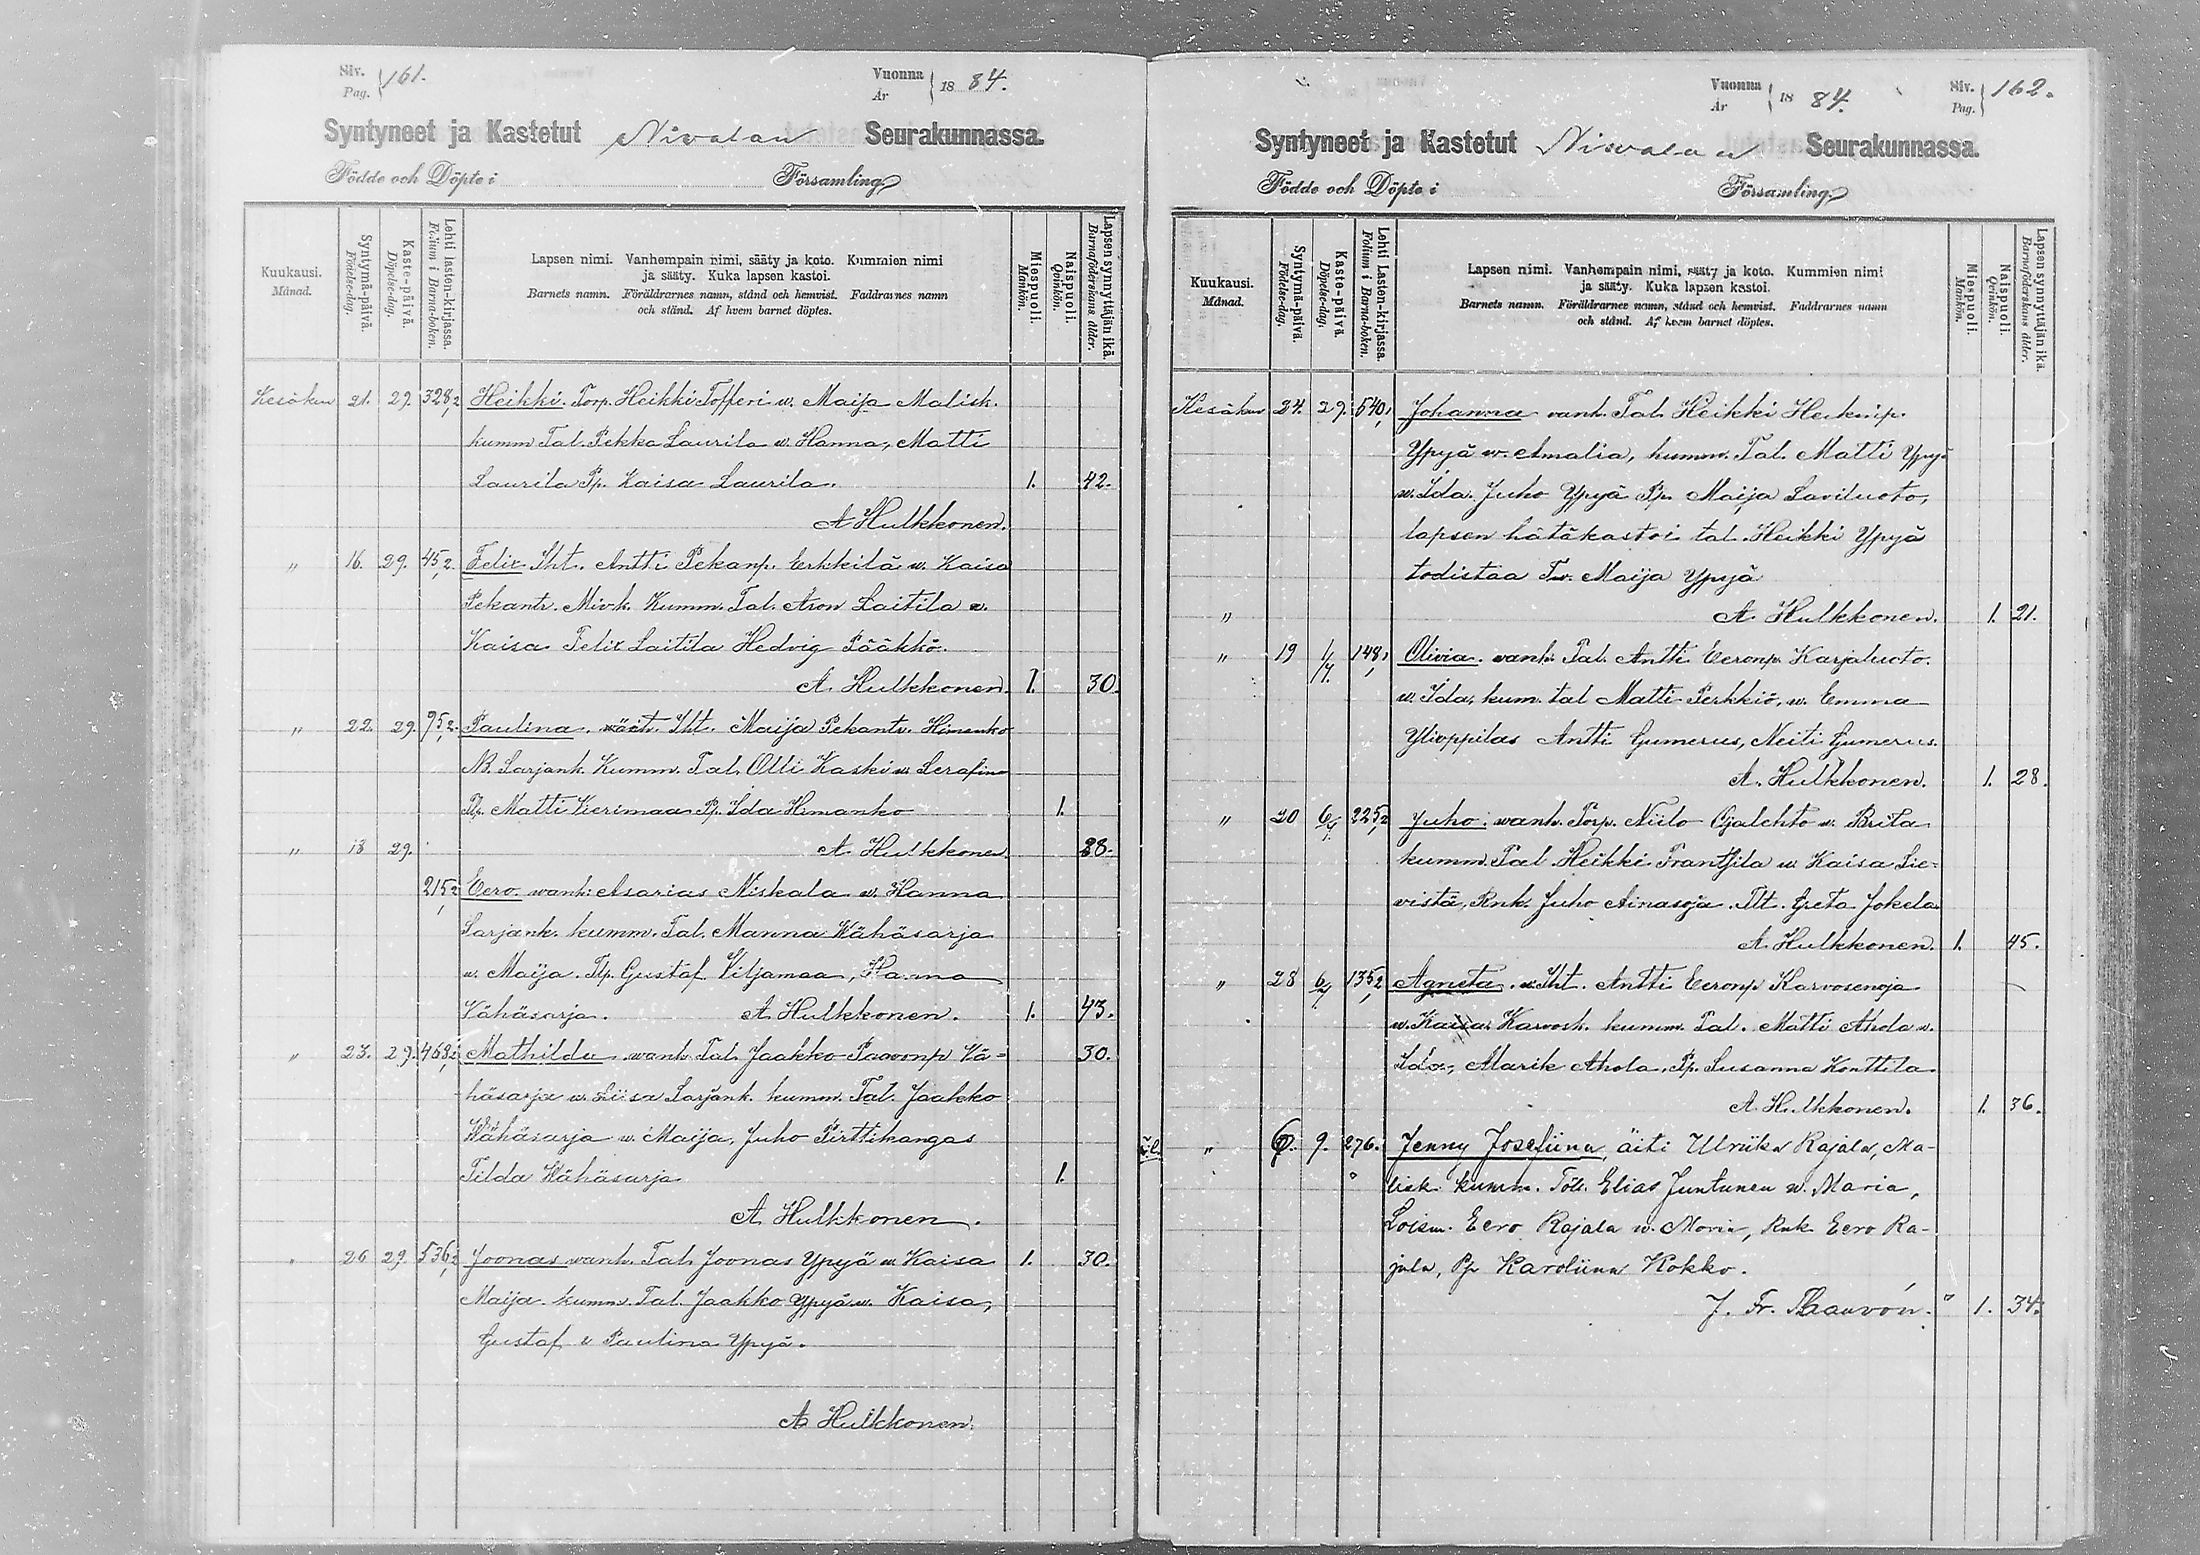 Siv. Pag. 161.
Vuonna År 1884.
Syntyneet ja Kastetut Nivalan Seurakunnassa.
Födde och Döpte i Församling
Kuukausi. Månad.
Syntymä-päivä. Födelse-dag.
Kaste-päivä. Döpelse-dag.
Lehti lasten-kirjassa. Folium i Barna-boken.
Lapsen nimi. Vanhempain nimi, sääty ja koto. Kummien nimi
ja sääty. Kuka lapsen kastoi.
Barnets namn. Föräldrarnes namn, stånd och hemvist. Faddrarnes namn
och stånd. Af hvem barnet döptes.
Miespuoli. Mankön.
Naispuoli. Qvinkön.
Lapsen synnyttäjän ikä. Barnaföderskans ålder.
Kesäkuu 21. 29. 328,2 Heikki. Torp. Heikki Tofferi w. Maija Malisk.
kumm Tal. Pekka Laurila w. Hanna, Matti
Laurila Pp. Kaisa Laurila. 1. 42.
A Hulkkonen.
" 16. 29. 45,2. Felix Iht. Antti Pekanp. Erkkilä w. Kaisa
Pekantr. Mivk. Kumm. Tal. Aron Laitila w.
Kaisa Felix Laitila Hedvig Pääkkö.
A. Hulkkonen 1. 30.
" 22. 29. 95,2. Paulina. Iht. Maija Pekantr. Himanko
NB. Sarjank. Kumm. Tal. Olli Kaski w. Serafina
Tlp. Matti Vierimaa Pp. Ida Himanko 1.
" 18 29. A. Hulkkonen 28.
215,2 Eero. wanh: Asarias Niskala w. Hanna
Sarjank. kumm. Tal. Manna Wähäsarja
w. Maija. Tlp. Gustaf Viljamaa, Hanna
Vähäsarja. A. Hulkkonen. 1. 43.
" 23. 29. 468,2 Mathilda wanh. Tal. Jaakko Paavonp Vä-
häsarja w. Liisa Sarjank. kumm. Tal. Jaakko 30.
Wähäsarja w. Maija, Juho Pirttikangas
Tilda Wähäsarja 1.
A. Hulkkonen.
" 26 29. 536,2 Joonas wanh. Tal. Joonas Ypyä w. Kaisa 1. 30.
Maija. kumm. Tal. Jaakko Ypyä w. Kaisa,
Gustaf & Paulina Ypyä.
A Hulkkonen.
Vuonna År 1884.
Siv. Pag. 162.
Syntyneet ja Kastetut Nivalan Seurakunnassa.
Födde och Döpte i Församling
Kuukausi. Månad.
Syntymä-päivä. Födelse-dag.
Kaste-päivä. Döpelse-dag.
Lehti Lasten-kirjassa. Folium i Barna-boken.
Lapsen nimi. Vanhempain nimi, sääty ja koto. Kummien nimi
ja sääty. Kuka lapsen kastoi.
Barnets namn. Föräldrarnes namn, stånd och hemvist. Faddrarnes namn
och stånd. Af hvem barnet döptes.
Miespuoli. Mankön.
Naispuoli. Qvinkön.
Lapsen synnyttäjän ikä. Barnaföderskans ålder.
Kesäkuu 24. 29. 540, Johanna wanh. Tal. Heikki Heikinp.
Ypyä w. Amalia, kumm. Tal. Matti Ypyä
w. Ida. Juho Ypyä Pp. Maija Saviluoto,
lapsen hätäkastoi tal. Heikki Ypyä
todistaa Tw. Maija Ypyä
" A. Hulkkonen. 1. 21.
" 19 1/7. 148, Olivia. wanh. Tal. Antti Eeronp. Karjaluoto.
w. Ida, kum. tal Matti Perkkiö, w. Emma
Ylioppilas Antti Gumerus, Neiti Gumerus.
A. Hulkkonen. 1. 28.
" 20 6/7. 225,2 Juho. wanh. Torp. Niilo Ojalehto w. Brita
kumm. Tal Heikki Frantsila w. Kaisa Sie-
vistä, Rnk. Juho Ainasoja. Tlt. Greta Jokela
A. Hulkkonen. 1. 45.
" 28 6/7 135,2 Agneta. w. Iht. Antti Eeronp Karvosenoja
w. Kaisa Karvosk. kumm. Tal. Matti Ahola w.
Ida, Marik Ahola. Pp. Susanna Konttila
A. Hulkkonen. 1. 36.
" 9. 276. Jenny Josefiina, äiti Ulriika Rajala, Ma-
lisk. kumm. Töll. Elias Juntunen w. Maria,
Loism. Eero Rajala w. Maria, Rnk Eero Ra-
jala, Pp Karoliina Kokko.
J. Fr. Thauvón. 1. 34.